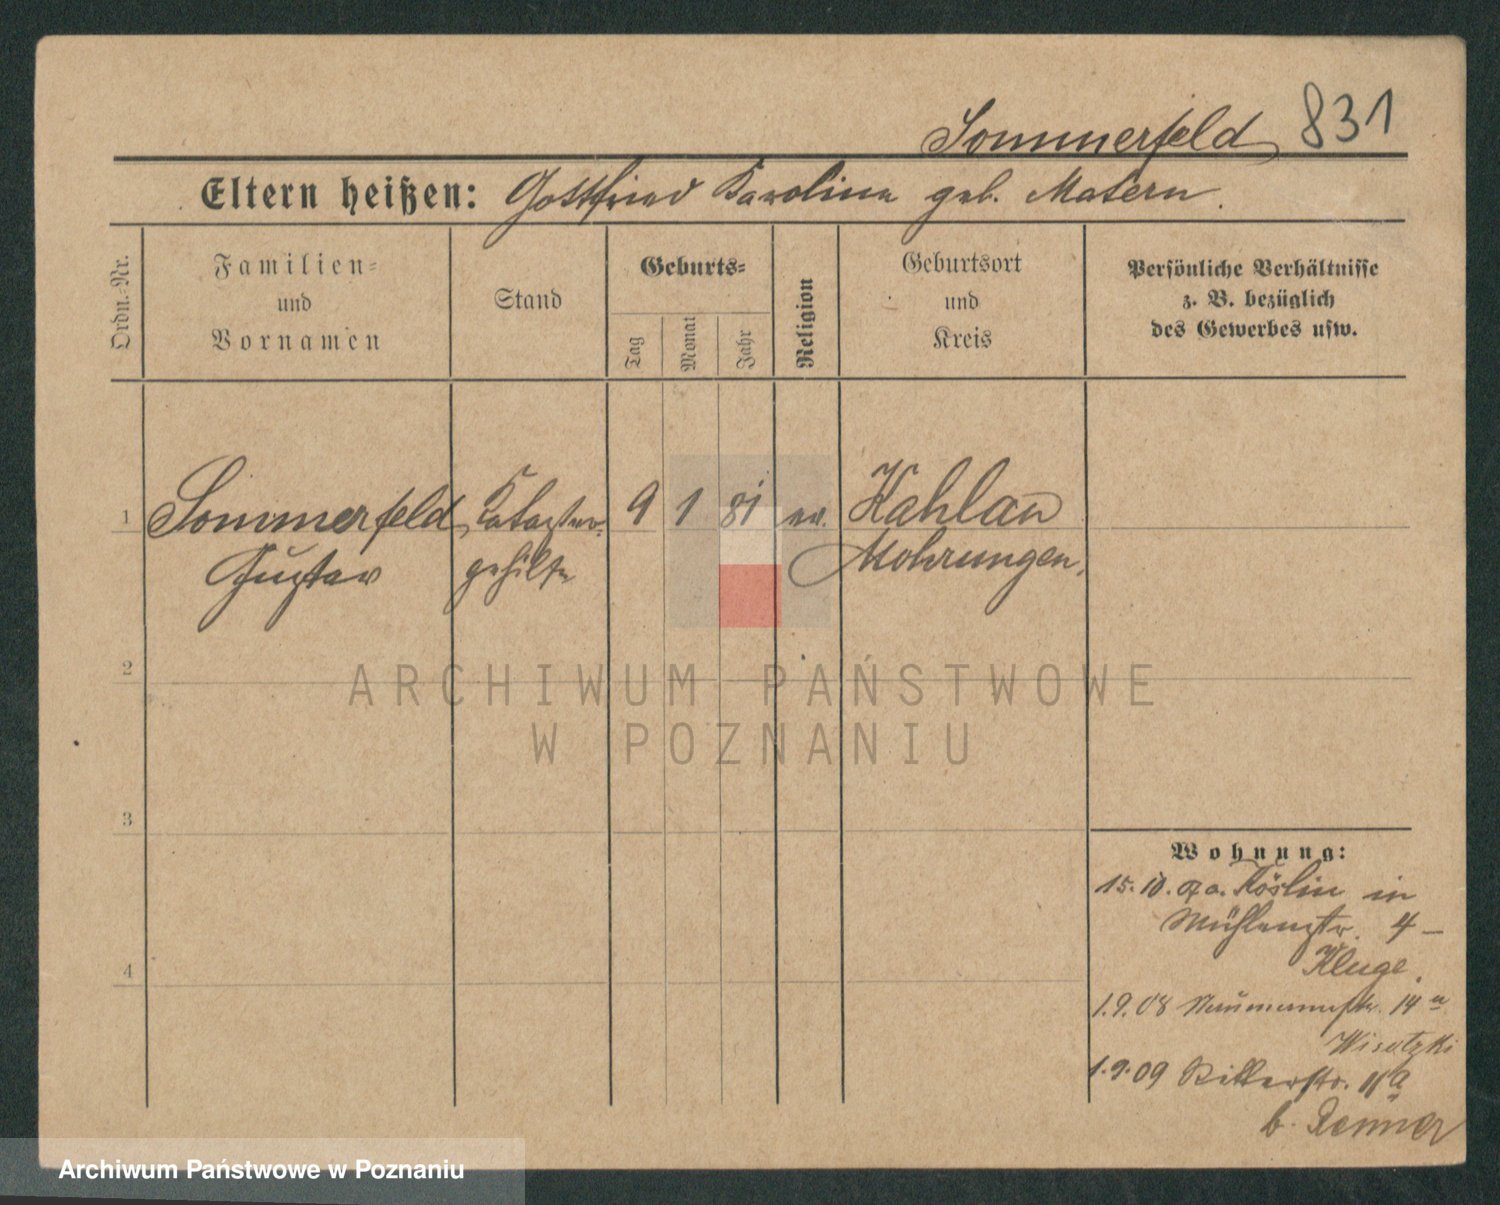 Sommerfeld 831
Eltern heißen: Gottfried Karoline geb. Matern.
Ordn.-Nr.
Familien-
und
Vornamen
Stand
Geburts-
Tag
Monat
Jahr
Religion
Geburtsort
und
Kreis
Persönliche Verhältnisse
z. B. bezüglich
des Gewerbes usw.
1 Sommerfeld Kataster- 9 1 81 ev. Kahlau
Gustav gehilfe Mohrungen.
2
3
4
Wohnung:
15. 10. 07 a. Köslin in
Mühlenstr. 4 –
Kluge.
1.9.08 Naumannstr. 14
Wisotzki
1.9.09 Ritterstr. 11a
b. Renner
ARCHIWUM PAŃSTWOWE
W POZNANIU
Archiwum Państwowe w Poznaniu